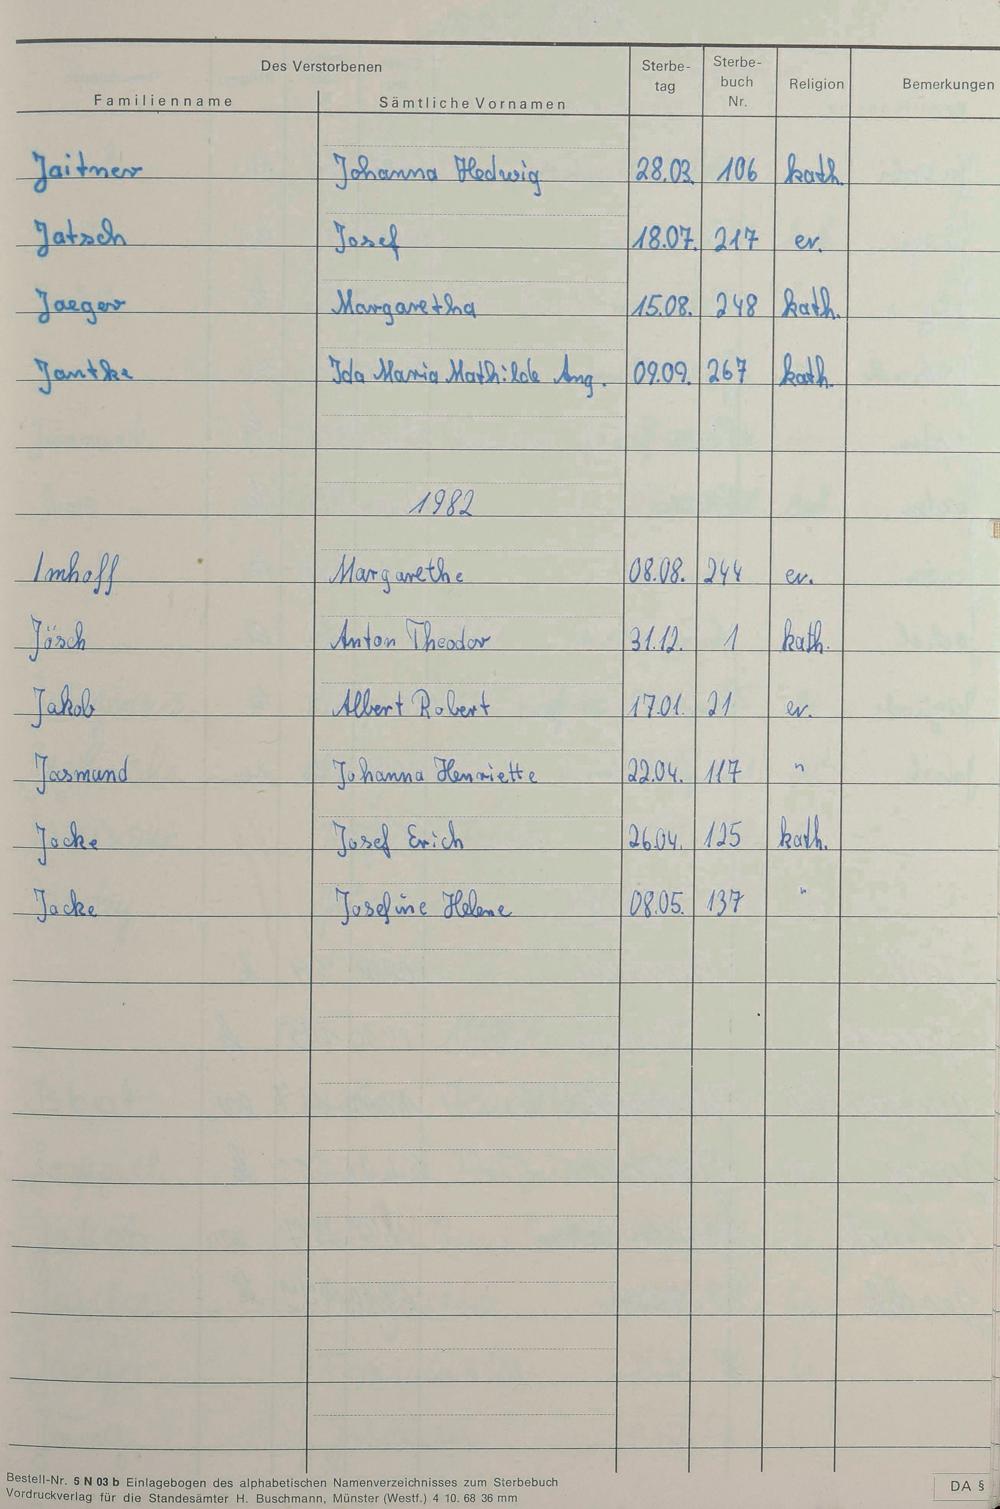 Des Verstorbenen
Familienname Sämtliche Vornamen Sterbe-tag Sterbe-buch Nr. Religion Bemerkungen
Jaitner Johanna Hedwig 28.03. 106 kath.
Jatsch Josef 18.07. 217 ev.
Jaeger Margaretha 15.08. 248 kath.
Jantke Ida Maria Mathilde Ang. 09.09. 267 kath.
1982
Imhoff Margarethe 08.08. 244 ev.
Jösch Anton Theodor 31.12. 1 kath.
Jakob Albert Robert 17.01. 21 ev.
Jasmund Johanna Henriette 22.04. 117 "
Jacke Josef Erich 26.04. 125 kath.
Jacke Josefine Helene 08.05. 137 "
Bestell-Nr. 5 N 03 b Einlagebogen des alphabetischen Namenverzeichnisses zum Sterbebuch
Vordruckverlag für die Standesämter H. Buschmann, Münster (Westf.) 4 10. 68 36 mm
DA §